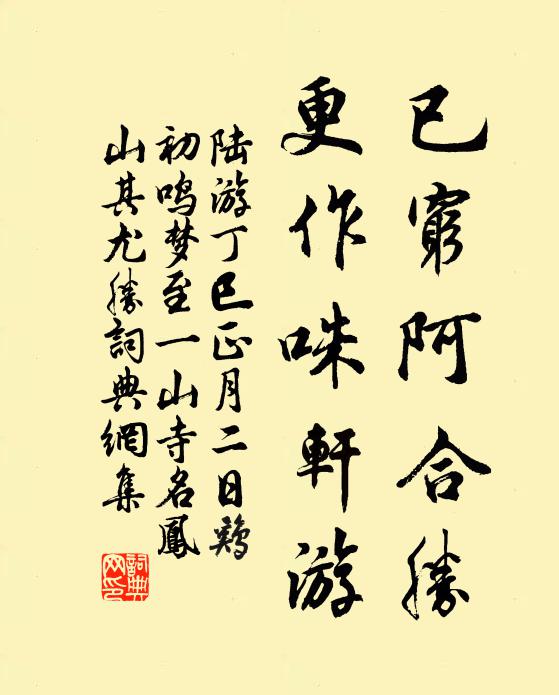 已窮阿合勝
更作咮軒游
陆游丁巳正月二日鷄
初鸣梦至一山寺名鳳
山其尤勝詞典網集
詞典网印